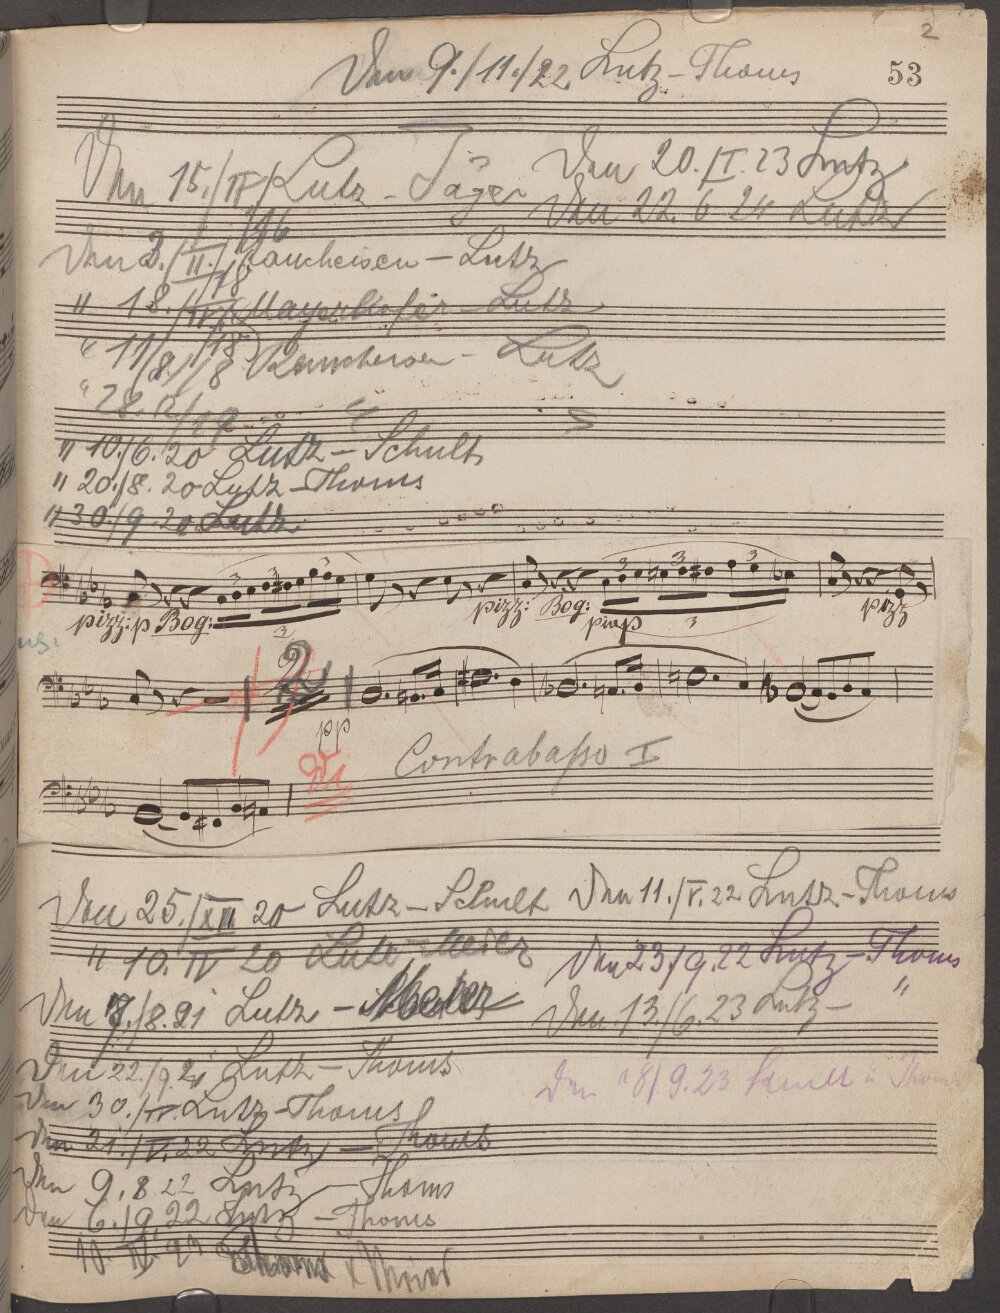 2
53
Den 9./11./22 Lutz - Thoms
Den 15./IV/16 Lutz - Jäger
Den 20./I. 23 Lutz
Den 22. 6 24
Den 3./II./18 Raucheisen - Lutz
" 18./IV/18 Mayerhofer - Lutz
" 11/8./18 Raucheisen - Lutz
" 28.
" 10./6. 20 Lutz - Schult
" 20./8. 20 Lutz - Thoms
" 30./9. 20 Lutz
3 3 3 3
pizz: p Bog: pizz: Bog: piup 3 pizz
3
2
pp
Contrabasso I
Den 25./XII 20 Lutz - Schult
Den 11./V. 22 Lutz - Thoms
" 10. IV 20 Lutz - Meier
Den 23./9. 22 Lutz - Thoms
Den 7./8. 21 Lutz -
Den 13./6. 23 Lutz - "
Den 22./9. 21 Lutz - Thoms
Den 18/9. 23 Schult u Thoms
Den 30./IV. Lutz - Thoms
Den 21./IV. 22 Lutz - Thoms
Den 9. 8. 22 Lutz - Thoms
Den 6./9. 22 Lutz - Thoms
10. IV.